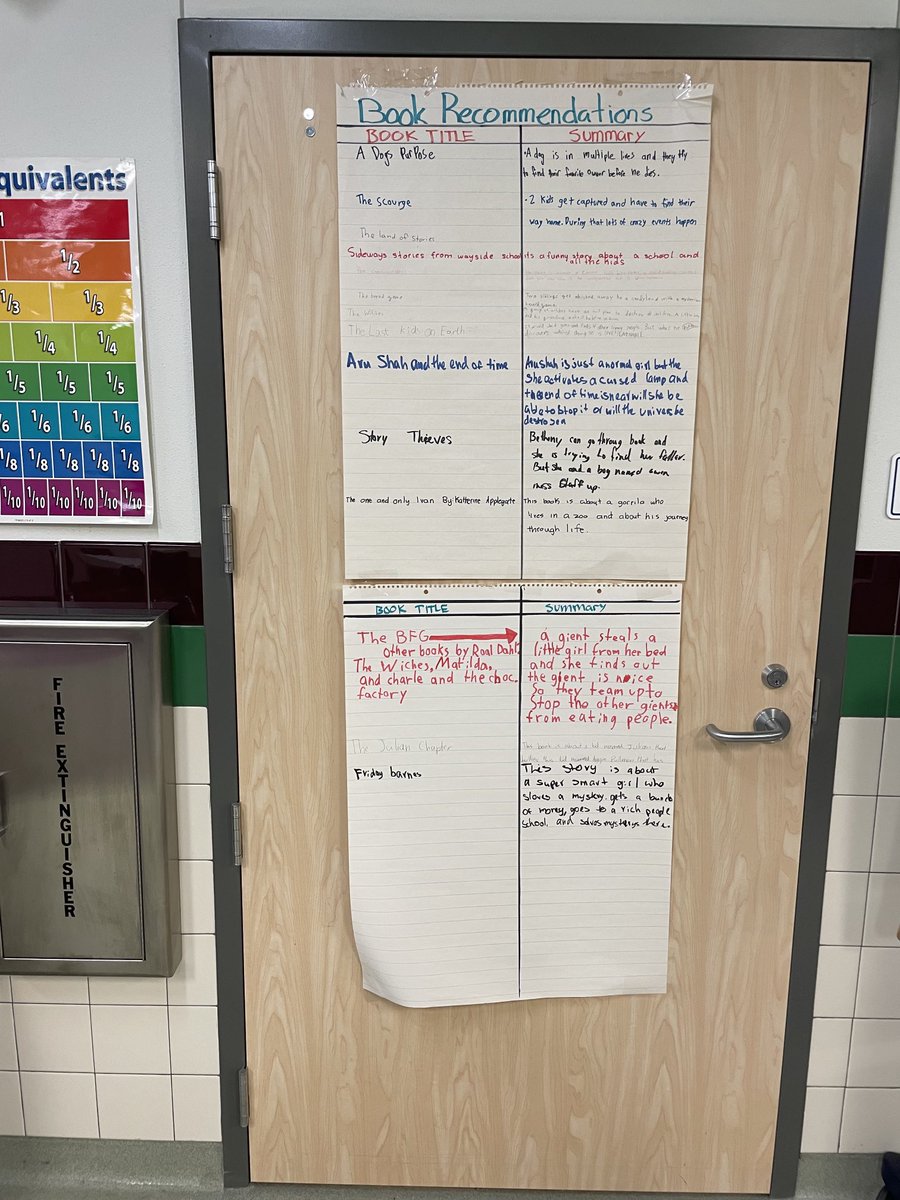 quivalents
1
1/2
1/3 1/3
1/4 1/4
1/5 1/5 1/5
1/6 1/6 1/6
1/8 1/8 1/8 1/8
1/10 1/10 1/10 1/10 1/10
FIRE EXTINGUISHER
Book Recommendations
BOOK TITLE Summary
A Dogs PurPose
• A dog is in multiple lives and they try
to find their favorite owner before he dies.
The scourge
• 2 kids get captured and have to find their
way home. During that lots of crazy events happen
The land of stories
Sideways stories from wayside school its a funny story about a school and
all the kids
The board game
The Last Kids on Earth
Aru Shah and the end of time
Arushah is just a normal girl but the
she activates a cursed lamp and
the end of time is near will she be
able to stop it or will the universe be
Story Thieves
Bethany can go throug book and
she is trying to find her father.
But she and a boy named owen
mess stuff up.
The one and only Ivan By: Katherine Applegate
This book is about a gorrila who
lives in a zoo and about his journey
through life.
BOOK TITLE Summary
The BFG
other books by Roal Dahl,
The Wiches, Matilda,
and charle and the choc.
factory
a gient steals a
little girl from her bed
and she finds out
the gient is nice
So they team up to
Stop the other gients
from eating people.
The Julian Chapter
Friday barnes
This story is about
a super smart girl who
sloves a mystery. gets a bunch
of money, goes to a rich people
school, and solves mysterys there.